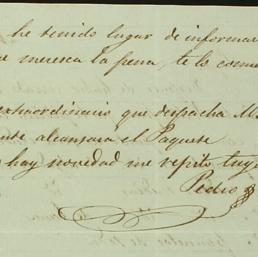 he tenido lugar de informar
que meresca la pena, te lo comu
extraordinario que despacha M.
alcanzara el Paquete
hay novedad me repito tuyo
Pedro